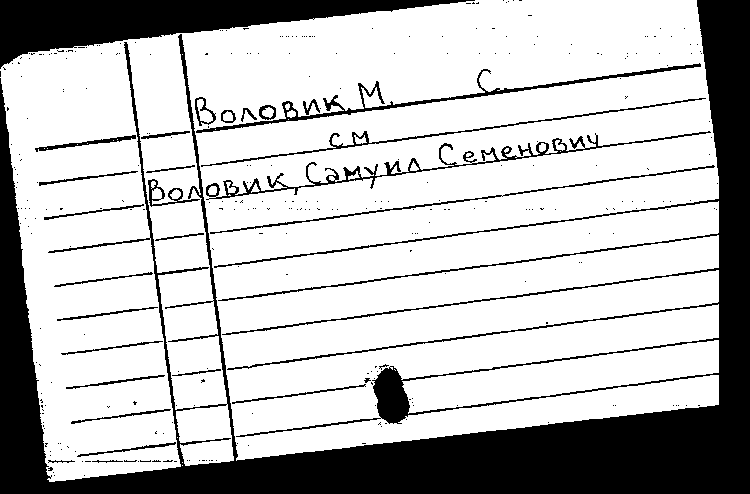 Воловик, М. С.
см
Воловик, Самуил Семенович